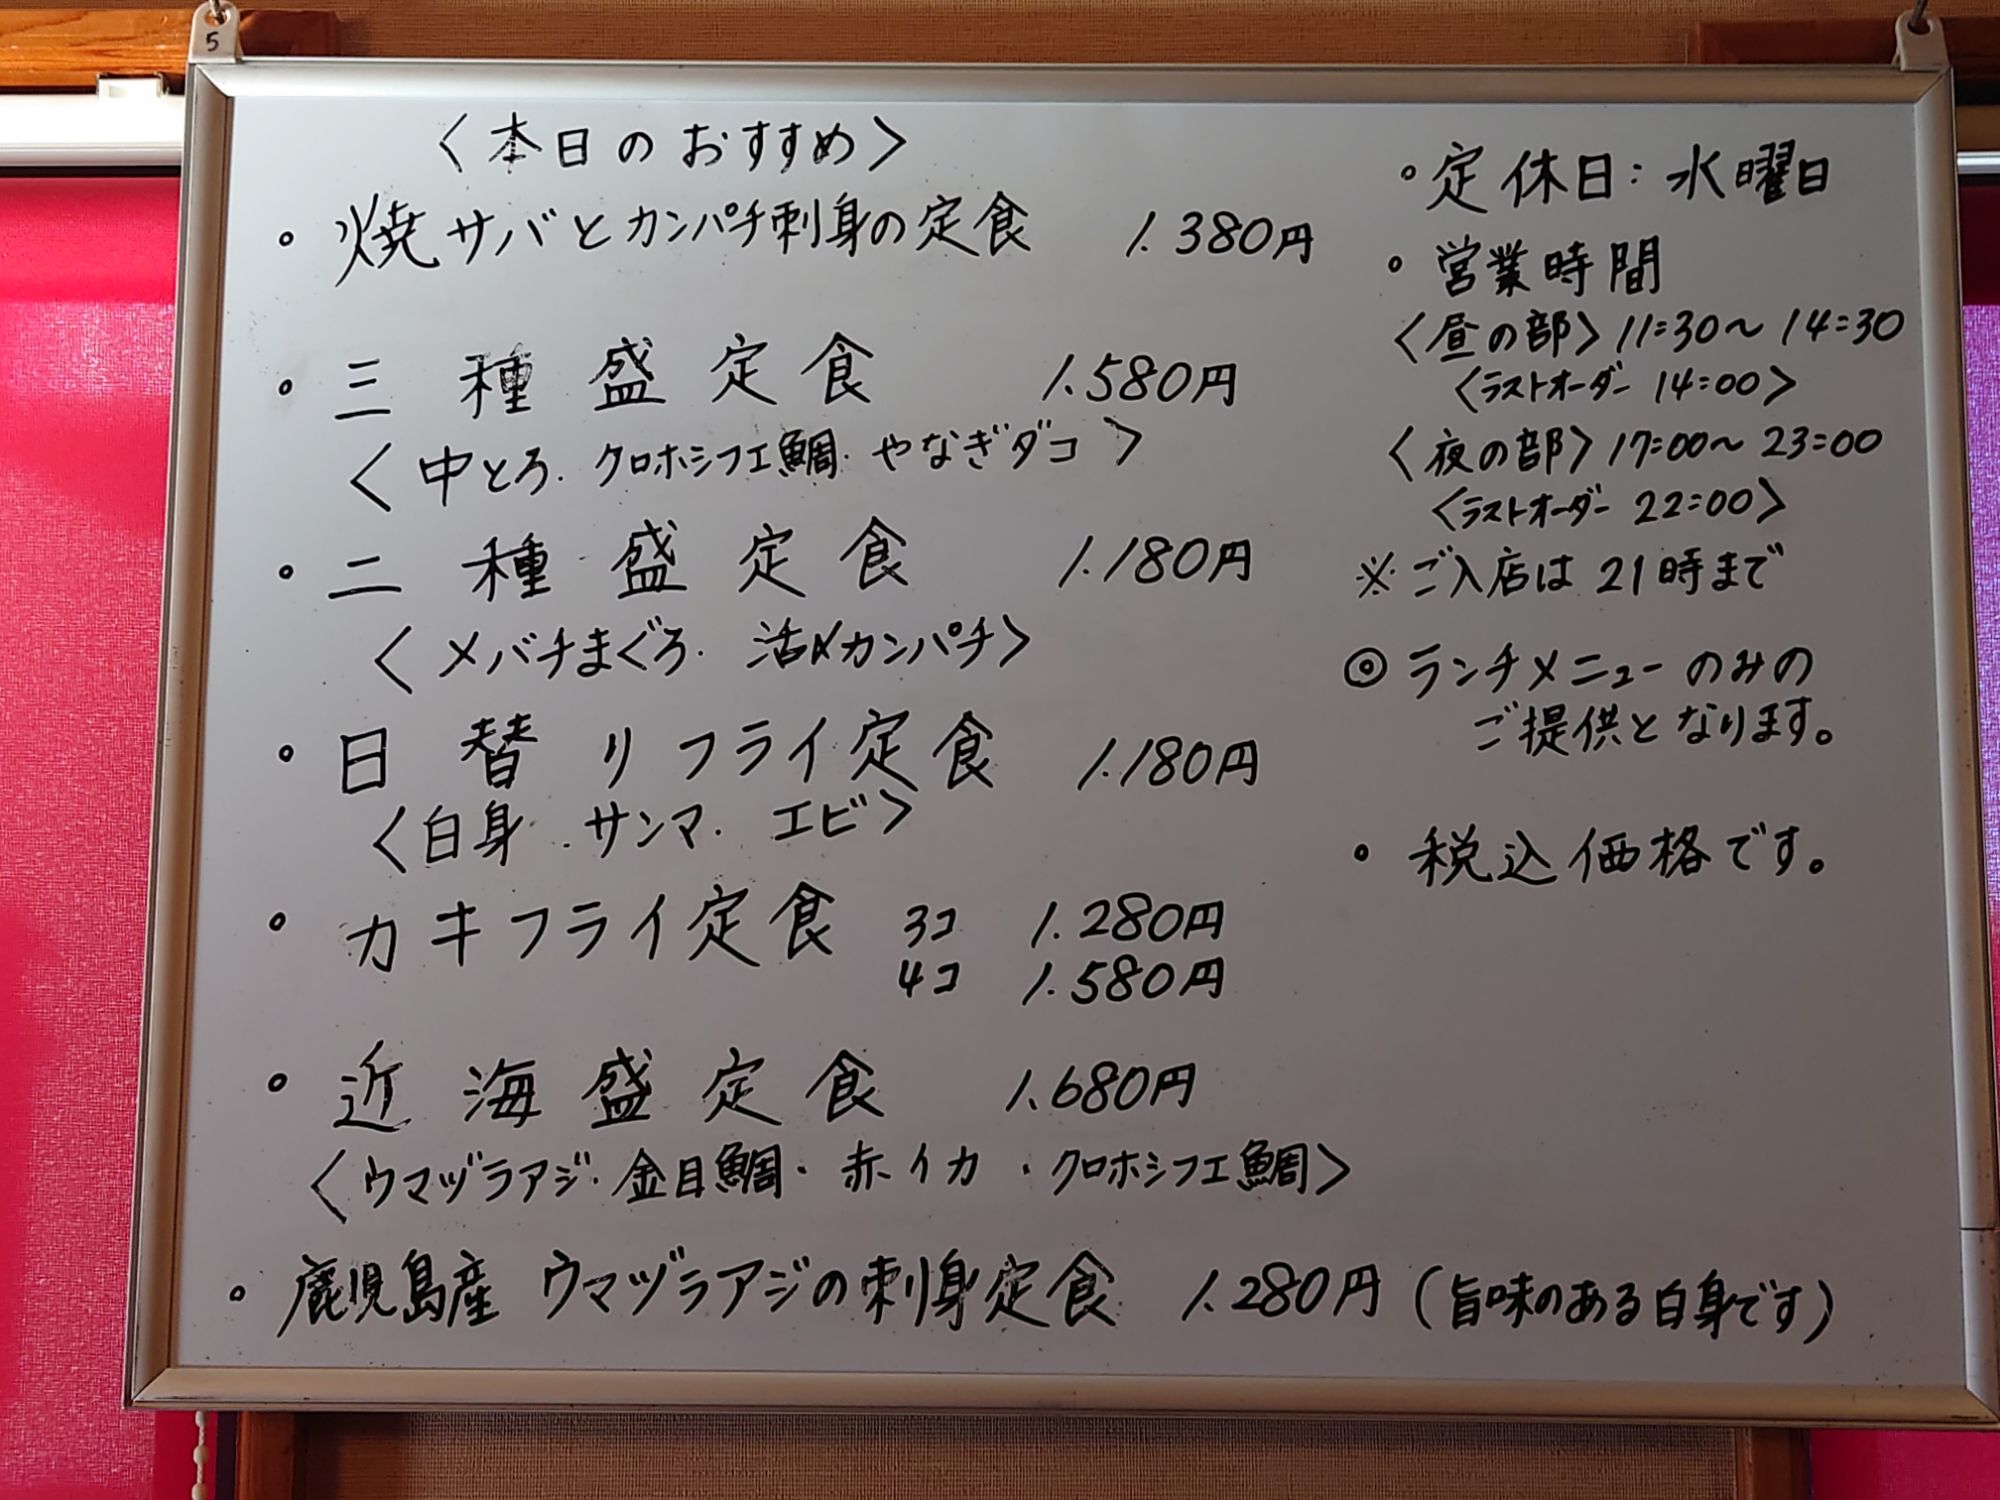 5
〈本日のおすすめ〉
• 焼サバとカンパチ刺身の定食 1.380円
• 三種盛定食 1.580円
〈中とろ. クロホシフエ鯛. やなぎダコ〉
• 二種盛定食 1.180円
〈メバチまぐろ. 活〆カンパチ〉
• 日替りフライ定食 1.180円
〈白身. サンマ. エビ〉
• カキフライ定食 3コ 1.280円
4コ 1.580円
• 近海盛定食 1.680円
〈ウマヅラアジ・金目鯛・赤イカ・クロホシフエ鯛〉
• 鹿児島産 ウマヅラアジの刺身定食 1.280円(旨味のある白身です)
• 定休日: 水曜日
• 営業時間
〈昼の部〉11:30〜14:30
〈ラストオーダー 14:00〉
〈夜の部〉17:00〜23:00
〈ラストオーダー 22:00〉
※ご入店は21時まで
◎ ランチメニューのみの
ご提供となります。
• 税込価格です。